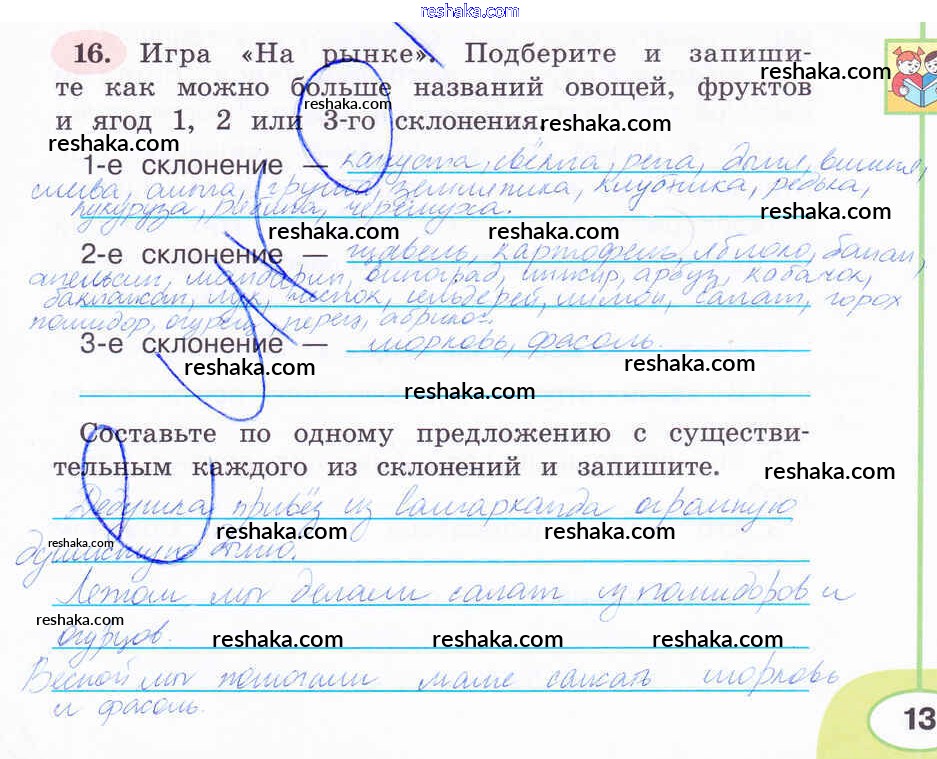 reshaka.com
16. Игра «На рынке». Подберите и запиши-
reshaka.com
те как можно больше названий овощей, фруктов
reshaka.com
и ягод 1, 2 или 3-го склонения.
reshaka.com
reshaka.com
1-е склонение — капуста, свёкла, репа, дыня, вишня,
слива, алыча, груша, земляника, клубника, редька,
кукуруза, рябина, черёмуха.
reshaka.com
reshaka.com reshaka.com
2-е склонение — щавель, картофель, яблоко, банан,
апельсин, мандарин, виноград, инжир, арбуз, кабачок,
баклажан, лук, чеснок, сельдерей, лимон, салат, горох
помидор, огурец, перец, абрикос.
3-е склонение — морковь, фасоль.
reshaka.com reshaka.com
reshaka.com
Составьте по одному предложению с существи-
тельным каждого из склонений и запишите.
reshaka.com
Дедушка привёз из Самарканда огромную
reshaka.com reshaka.com reshaka.com
reshaka.com
душистую дыню.
Летом мы делали салат из помидоров и
reshaka.com
огурцов.
reshaka.com reshaka.com reshaka.com
Весной мы помогали маме сажать морковь
и фасоль.
13